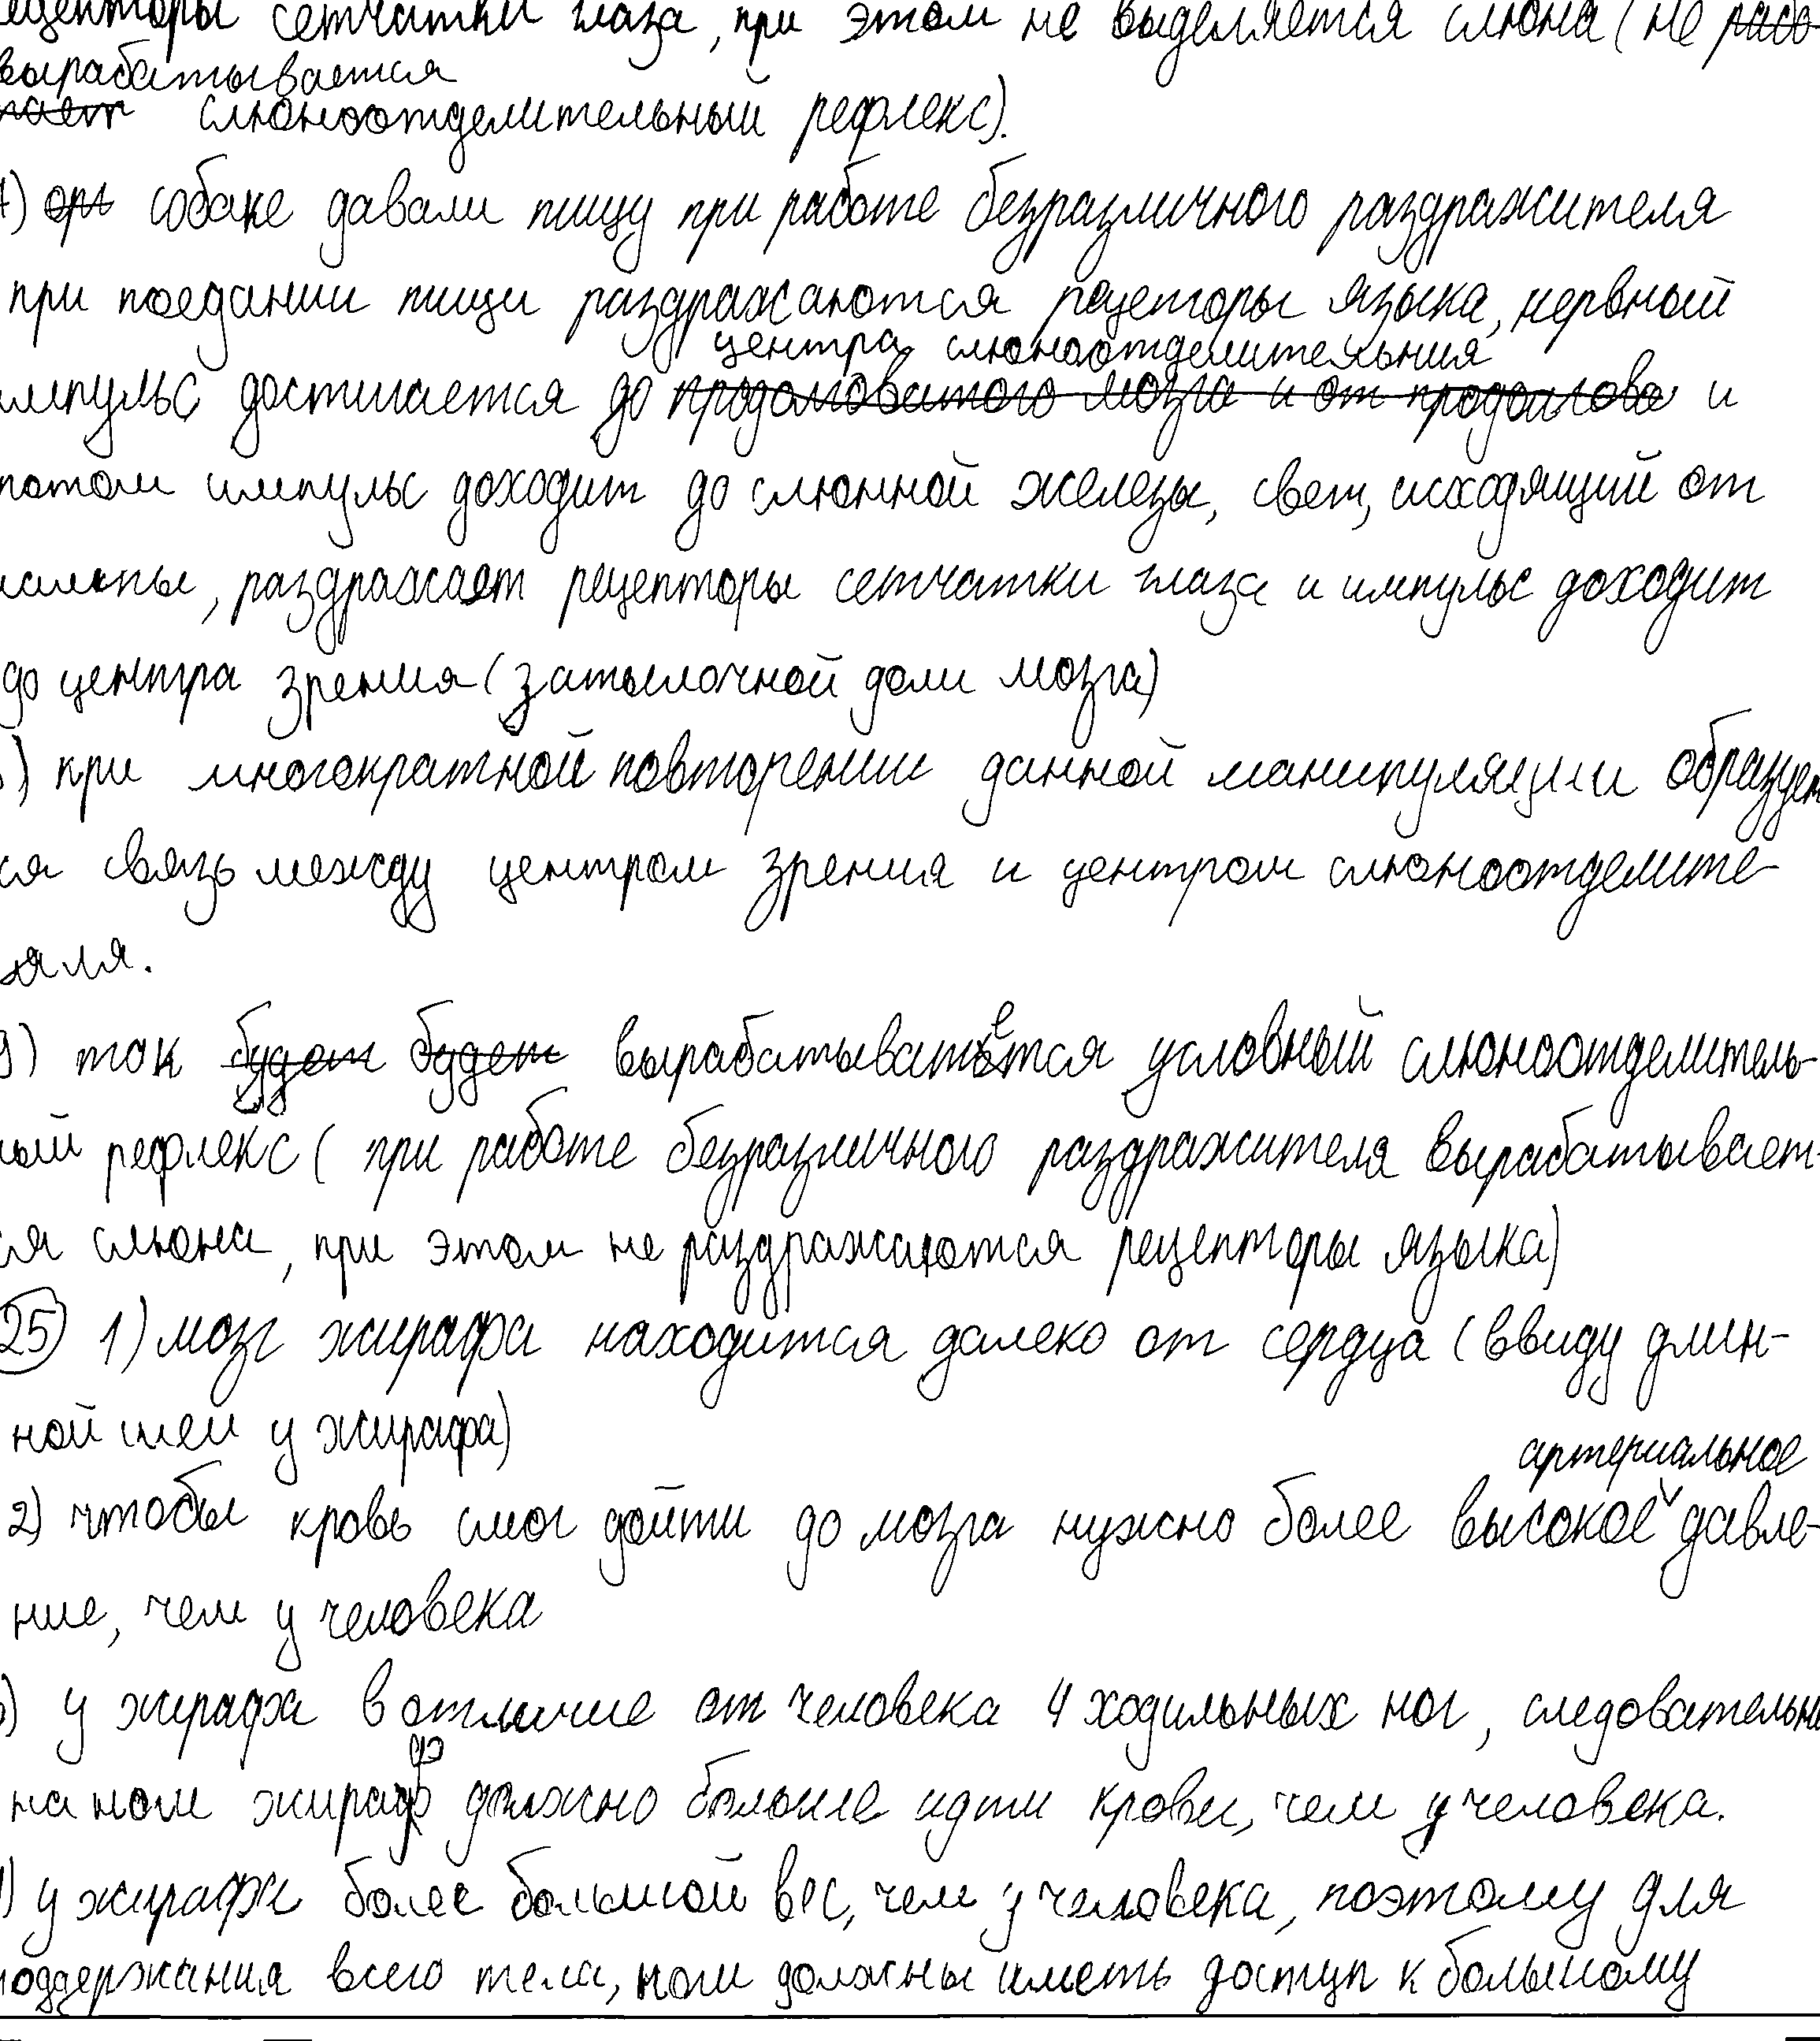 ецепторы сетчатки глаза, при этом не выделяется слюна (не рабо-
вырабатывается
тает слюноотделительный рефлекс).
7) орг собаке давали пищу при работе безразличного раздражителя
при поедании пищи раздражаются рецепторы языка, нервный
центра слюноотделительния
импульс достигается до продолговатого мозга и от продолгова и
потом импульс доходит до слюнной железы, свет, исходящий от
лампы, раздражает рецепторы сетчатки глаза и импульс доходит
до центра зрения (затылочной доли мозга)
) при многократной повторении данной манипуляции образует
ся связь между центром зрения и центром слюноотделите-
.
9) так будет будет вырабатывается условный слюноотделитель-
ный рефлекс (при работе безразличного раздражителя вырабатывает-
ся слюна, при этом не раздражаются рецепторы языка)
25 1) мозг жирафа находится далеко от сердца (ввиду длин-
ной шеи у жирафа)
артериальное
2) чтобы кровь смог дойти до мозга нужно более высокое давле-
ние, чем у человека
) у жирафа в отличие от человека 4 ходильных ног, следовательно
на ноги жираф должно больше идти крови, чем у человека.
) у жирафа более большой вес, чем у человека, поэтому для
поддержания всего тела, ноги должны иметь доступ к большому